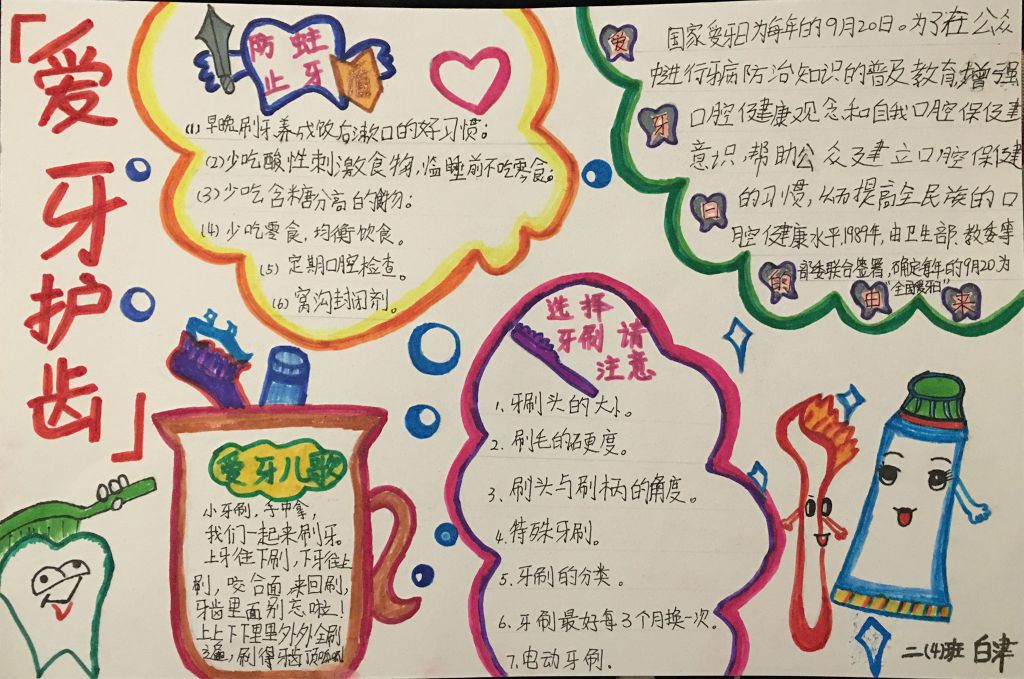 「爱牙护齿」
防蛀
止牙
(1)早晚刷牙养成饭后漱口的好习惯；
(2)少吃酸性刺激食物，临睡前不吃零食；
(3)少吃含糖分高的食物；
(4)少吃零食，均衡饮食。
(5)定期口腔检查。
(6)窝沟封闭剂。
爱牙日的由来
国家爱牙日为每年的9月20日。为了在公众
中进行牙病防治知识的普及教育，增强
口腔健康观念和自我口腔保健
意识，帮助公众建立口腔保健
的习惯，从而提高全民族的口
腔健康水平，1989年，由卫生部、教委等
部委联合签署，确定每年的9月20为
"全国爱牙日"
选择
牙刷请
注意
1、牙刷头的大小。
2、刷毛的硬度。
3、刷头与刷柄的角度。
4、特殊牙刷。
5、牙刷的分类。
6、牙刷最好每3个月换一次。
7、电动牙刷.
爱牙儿歌
小牙刷，手中拿，
我们一起来刷牙。
上牙往下刷，下牙往上
刷，咬合面来回刷，
牙齿里面别忘啦！
上上下下里里外外全刷
遍，刷得牙齿
二(4)班 白津